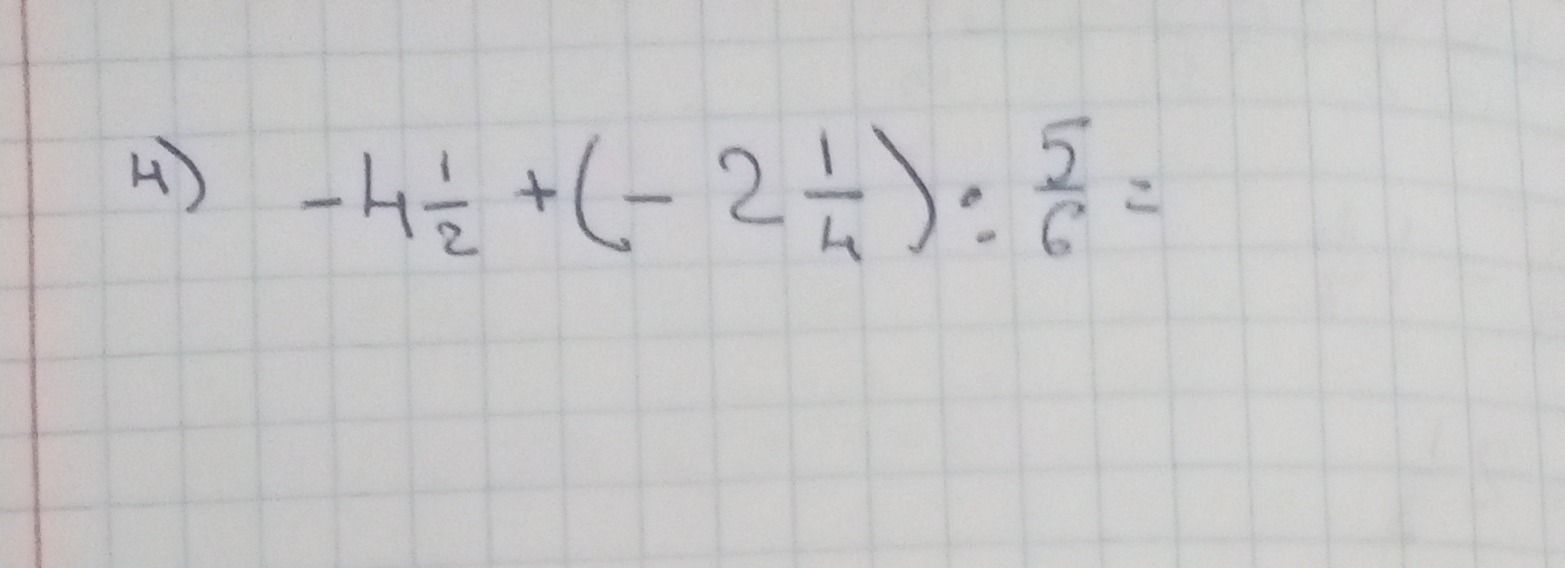 4) -4 1/2 + (- 2 1/4) : 5/6 =